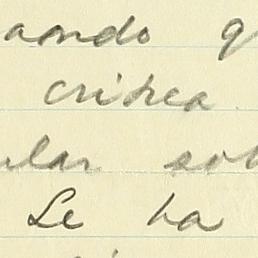 ando q
critica
ular sob
Le ha